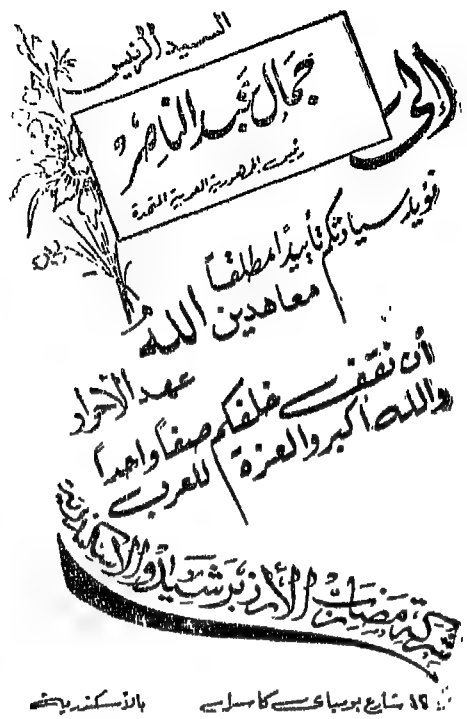 إلى
السيد الرئيس
جمال عبد الناصر
رئيس الجمهورية العربية المتحدة
نؤيد سيادتكم تأييداً مطلقاً
معاهدين الله
عهد الأحرار
أن نقف خلفكم صفاً واحداً
والله أكبر والعزة للعرب
شركة مضارب الأرز برشيد والإسكندرية
١٢ شارع بالأسكندرية